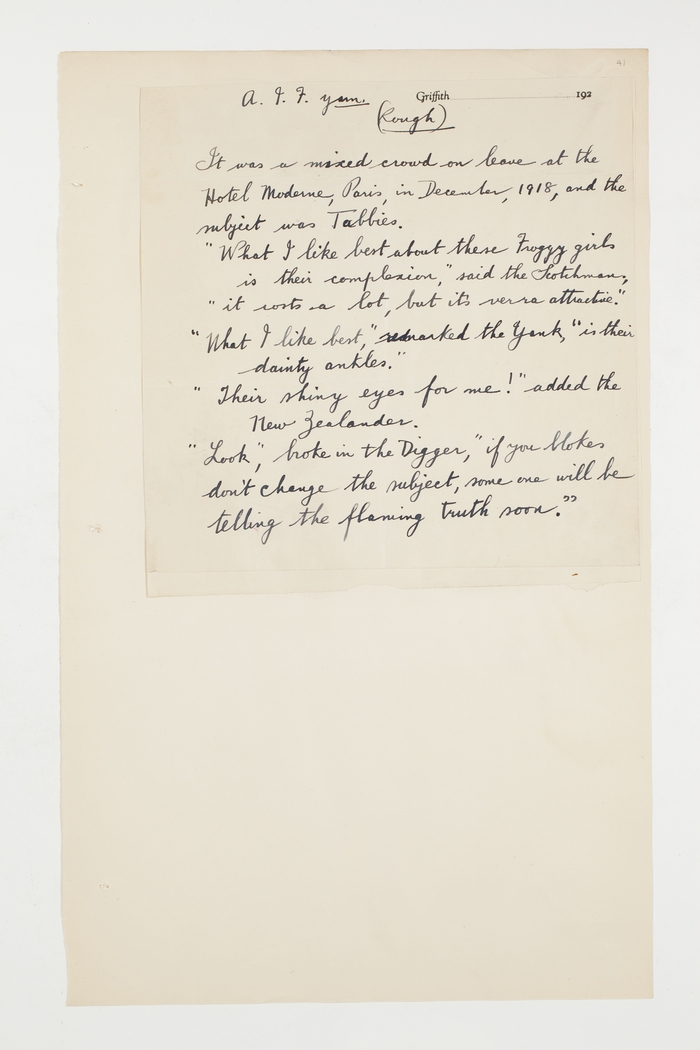 41
A. I. F. yarn. Griffith 192
(Rough)
It was a mixed crowd on leave at the
Hotel Moderne, Paris, in December, 1918, and the
subject was Tabbies.
"What I like best about these Froggy girls
is their complexion," said the Scotchman,
"it costs a lot, but its verra attractive."
"What I like best," remarked the Yank, "is their
dainty ankles."
"Their shiny eyes for me!" added the
New Zealander.
"Look", broke in the Digger, "if you blokes
don't change the subject, some one will be
telling the flaming truth soon."